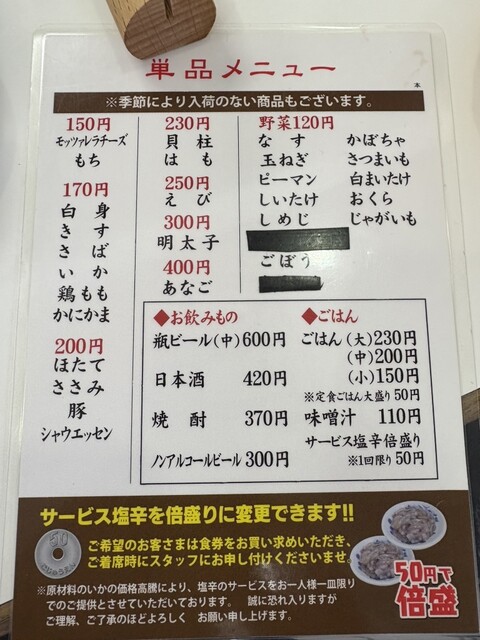 単品メニュー
本
※季節により入荷のない商品もございます。
150円
モッツァレラチーズ
もち
170円
白身
きす
さば
いか
鶏もも
かにかま
200円
ほたて
ささみ
豚
シャウエッセン
230円
貝柱
はも
250円
えび
300円
明太子
400円
あなご
野菜120円
なす かぼちゃ
玉ねぎ さつまいも
ピーマン 白まいたけ
しいたけ おくら
しめじ じゃがいも
ごぼう
◆お飲みもの
瓶ビール(中)600円
日本酒 420円
焼酎 370円
ノンアルコールビール 300円
◆ごはん
ごはん(大)230円
(中)200円
(小)150円
※定食ごはん大盛り50円
味噌汁 110円
サービス塩辛倍盛り
※1回限り50円
サービス塩辛を倍盛りに変更できます!!
50
ご希望のお客さまは食券をお買い求めいただき、
ご着席時にスタッフにお申し付けくださいませ。
50円で
倍盛
※原材料のいかの価格高騰により、塩辛のサービスをお一人様一皿限り
でのご提供とさせていただいております。 誠に恐れ入りますが
ご理解、ご了承のほどよろしく お願い申し上げます。